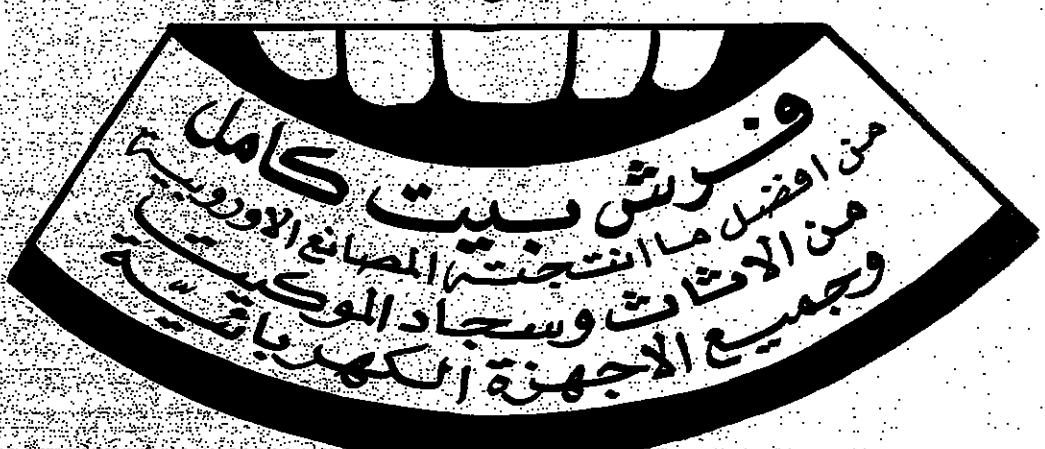 فرش بيت كامل
من افضل ما انتجته المصانع الاوروبية
من الاثاث وسجاد الموكيت
وجميع الاجهزة الكهربائيّة